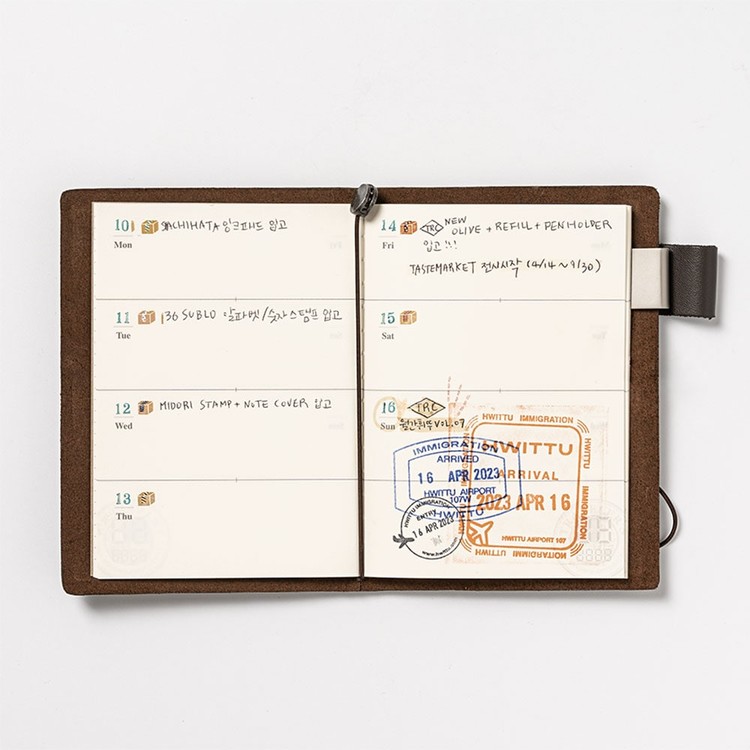 10
Mon
SHACHIHATA 잉크패드 입고
11
Tue
36 SUBLO 알파벳/숫자스탬프 입고
12
Wed
MIDORI STAMP + NOTE COVER 입고
13
Thu
14
Fri
TRC
NEW
OLIVE + REFILL + PENHOLDER
입고!!!
TASTEMARKET 전시시작 (4/14~9/30)
15
Sat
16
Sun
TRC
월간휘뚜 VOL.07
IMMIGRATION
ARRIVED
16 APR 2023
HWITTU AIRPORT
107W
HWITTU
HWITTU IMMIGRATION
ENTRY
16 APR 2023
www.hwittu.com
HWITTU IMMIGRATION
HWITTU
ARRIVAL
2023 APR 16
HWITTU AIRPORT 107
HWITTU
IMMIGRATION
HWITTU IMMIGRATION